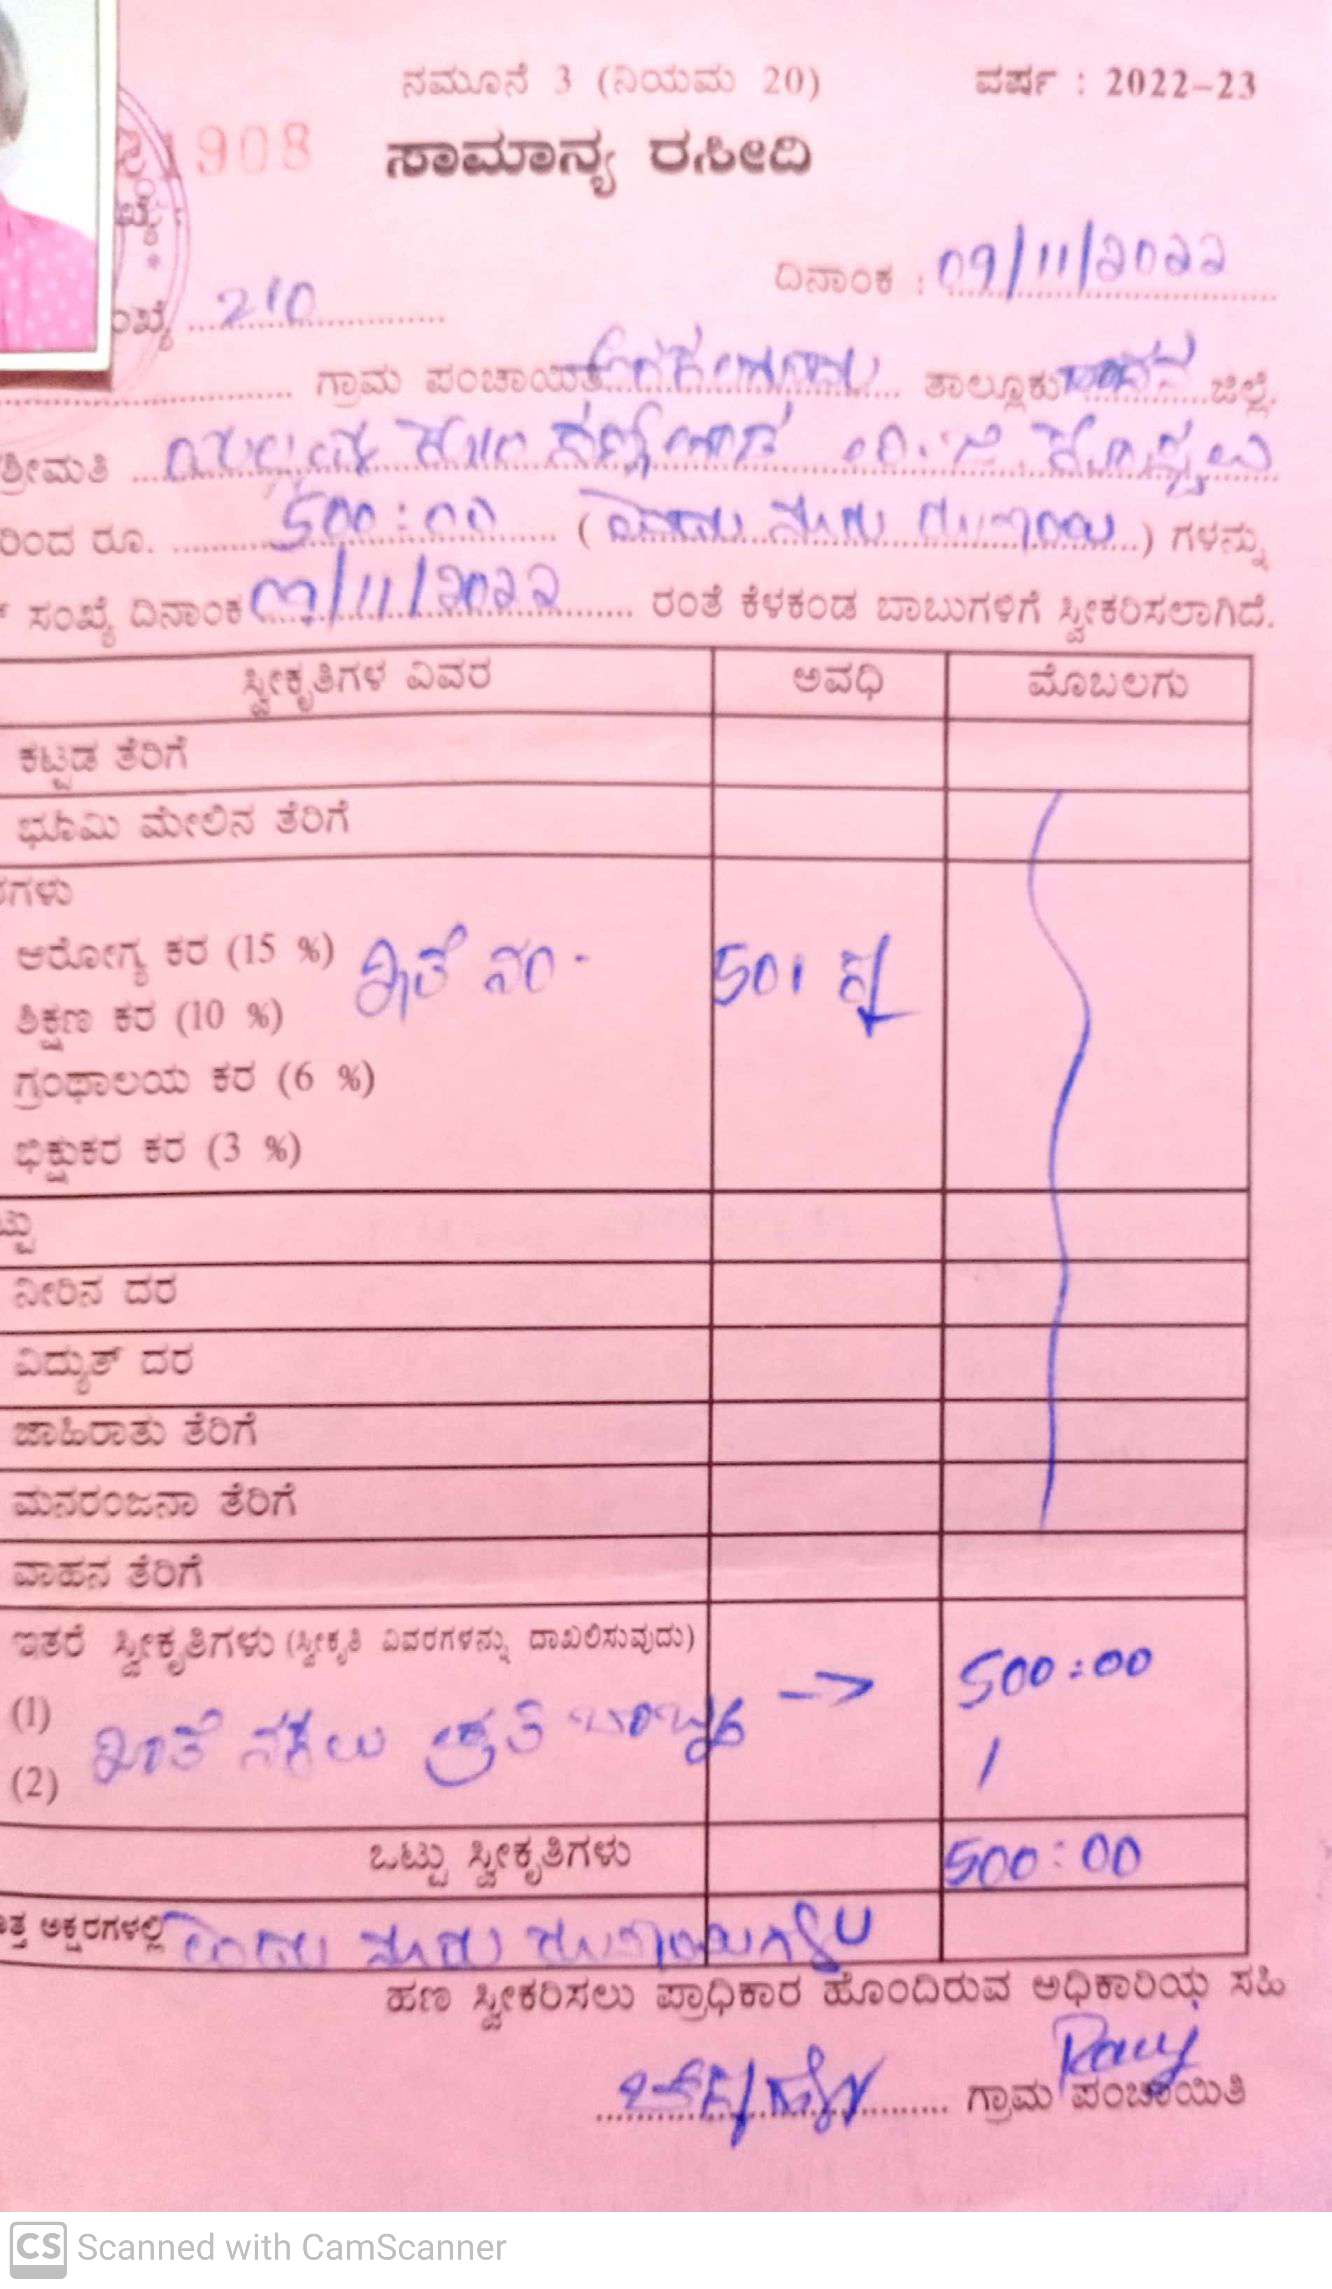 ನಮೂನೆ 3 (ನಿಯಮ 20) ವರ್ಷ : 2022-23
908 ಸಾಮಾನ್ಯ ರಸೀದಿ
ದಿನಾಂಕ : 09/11/2022
210
ಗ್ರಾಮ ಪಂಚಾಯಿತಿ ತಾಲ್ಲೂಕು ಜಿಲ್ಲೆ.
ಶ್ರೀಮತಿ
ರಿಂದ ರೂ. 500:00 (ಐದು ನೂರು ರೂಪಾಯಿ) ಗಳನ್ನು
ಸಂಖ್ಯೆ ದಿನಾಂಕ 09/11/2022 ರಂತೆ ಕೆಳಕಂಡ ಬಾಬುಗಳಿಗೆ ಸ್ವೀಕರಿಸಲಾಗಿದೆ.
ಸ್ವೀಕೃತಿಗಳ ವಿವರ ಅವಧಿ ಮೊಬಲಗು
ಕಟ್ಟಡ ತೆರಿಗೆ
ಭೂಮಿ ಮೇಲಿನ ತೆರಿಗೆ
ರಗಳು
ಆರೋಗ್ಯ ಕರ (15 %) ಖಾತೆ ನಂ. 501
ಶಿಕ್ಷಣ ಕರ (10 %)
ಗ್ರಂಥಾಲಯ ಕರ (6 %)
ಭಿಕ್ಷುಕರ ಕರ (3 %)
ಟ್ಟು
ನೀರಿನ ದರ
ವಿದ್ಯುತ್ ದರ
ಜಾಹಿರಾತು ತೆರಿಗೆ
ಮನರಂಜನಾ ತೆರಿಗೆ
ವಾಹನ ತೆರಿಗೆ
ಇತರೆ ಸ್ವೀಕೃತಿಗಳು (ಸ್ವೀಕೃತಿ ವಿವರಗಳನ್ನು ದಾಖಲಿಸುವುದು)
(1) ಖಾತೆ ನಕಲು ಪ್ರತಿ 500:00
(2)
ಒಟ್ಟು ಸ್ವೀಕೃತಿಗಳು 500:00
ತ್ತ ಅಕ್ಷರಗಳಲ್ಲಿ ಐದು ನೂರು ರೂಪಾಯಿಗಳು
ಹಣ ಸ್ವೀಕರಿಸಲು ಪ್ರಾಧಿಕಾರ ಹೊಂದಿರುವ ಅಧಿಕಾರಿಯ ಸಹಿ
ಗ್ರಾಮ ಪಂಚಾಯಿತಿ
CS Scanned with CamScanner